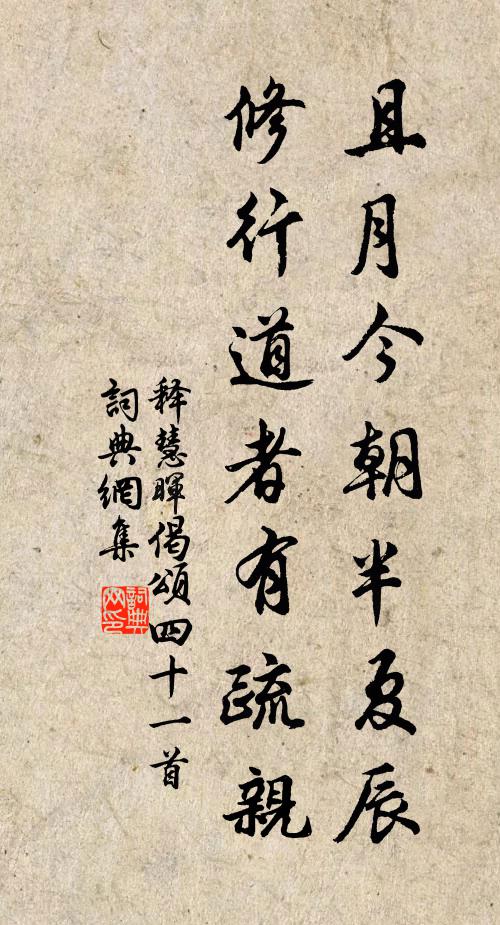 且月今朝半夏辰
修行道者有疏親
释慧暉偈頌四十一首
詞典網集
詞典网印